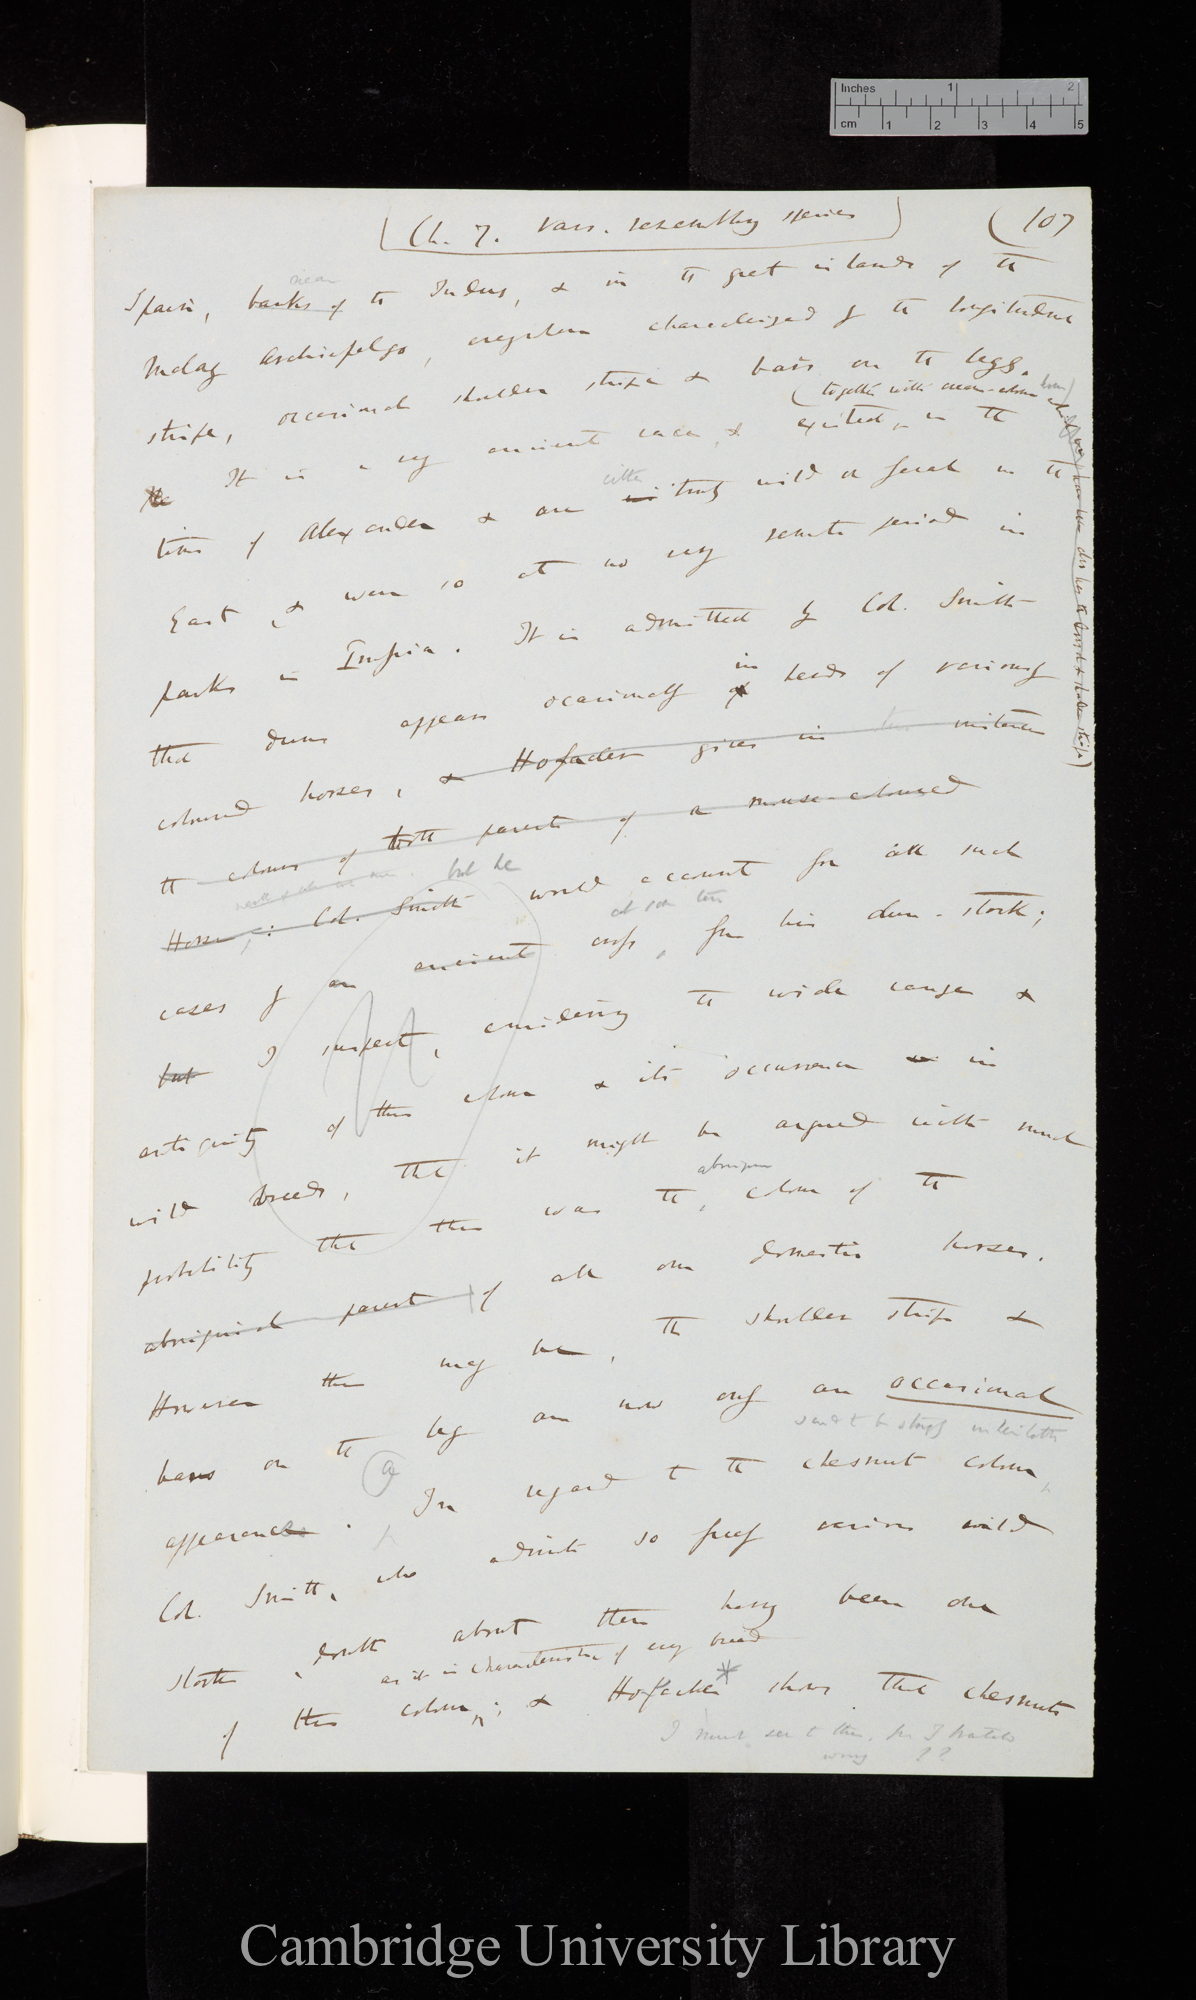 Inches 1 2
cm 1 2 3 4 5
(Ch. 7. Vars. resembling species) (107
near
Spain, banks of the Indus, & in the great islands of the
Malay Archipelago, everywhere characterized by the longitudinal
stripe, occasional shoulder stripe & bars on the legs.
(together with cream-colour
The It is a very ancient race, & existed, in the
either
time of Alexander & are in truly wild or feral in the
East, & were so at no very remote period in
parks in Prussia. It is admitted by Col. Smith
in
that duns appear occasionally of herds of variously
coloured horses, & Hofacker gives in instances
the colours of both parents of a mouse-coloured
but he
Horse; Col. Smith would account for all such
at some time
cases by an ancient cross, from his dun-stock;
but I suspect, considering the wide range &
antiquity of this colour & its occurrence in
wild breeds, that it might be argued with much
probability that this was the, colour of the
aboriginal parent of all our domestic horses.
However this may be, the shoulder stripe &
bars on the leg are now only an occasional
appearance. In regard to the chesnut colour,
a
Col. Smith, who admits so freely various wild
stocks, doubts about there having been one
as it is characteristic of any breed
of this colour; & Hofacker * shows that chesnuts
I must see to this, for I
wrong ??
Cambridge University Library